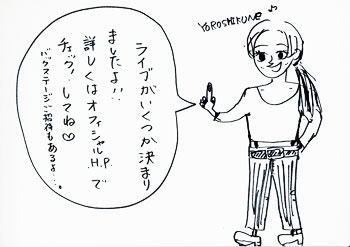 YOROSHIKUNE♪
ライブがいくつか決まり
ましたよ!!
詳しくはオフィシャルH.P.で
チェック!してね♡
バックステージご招待もあるよ…。